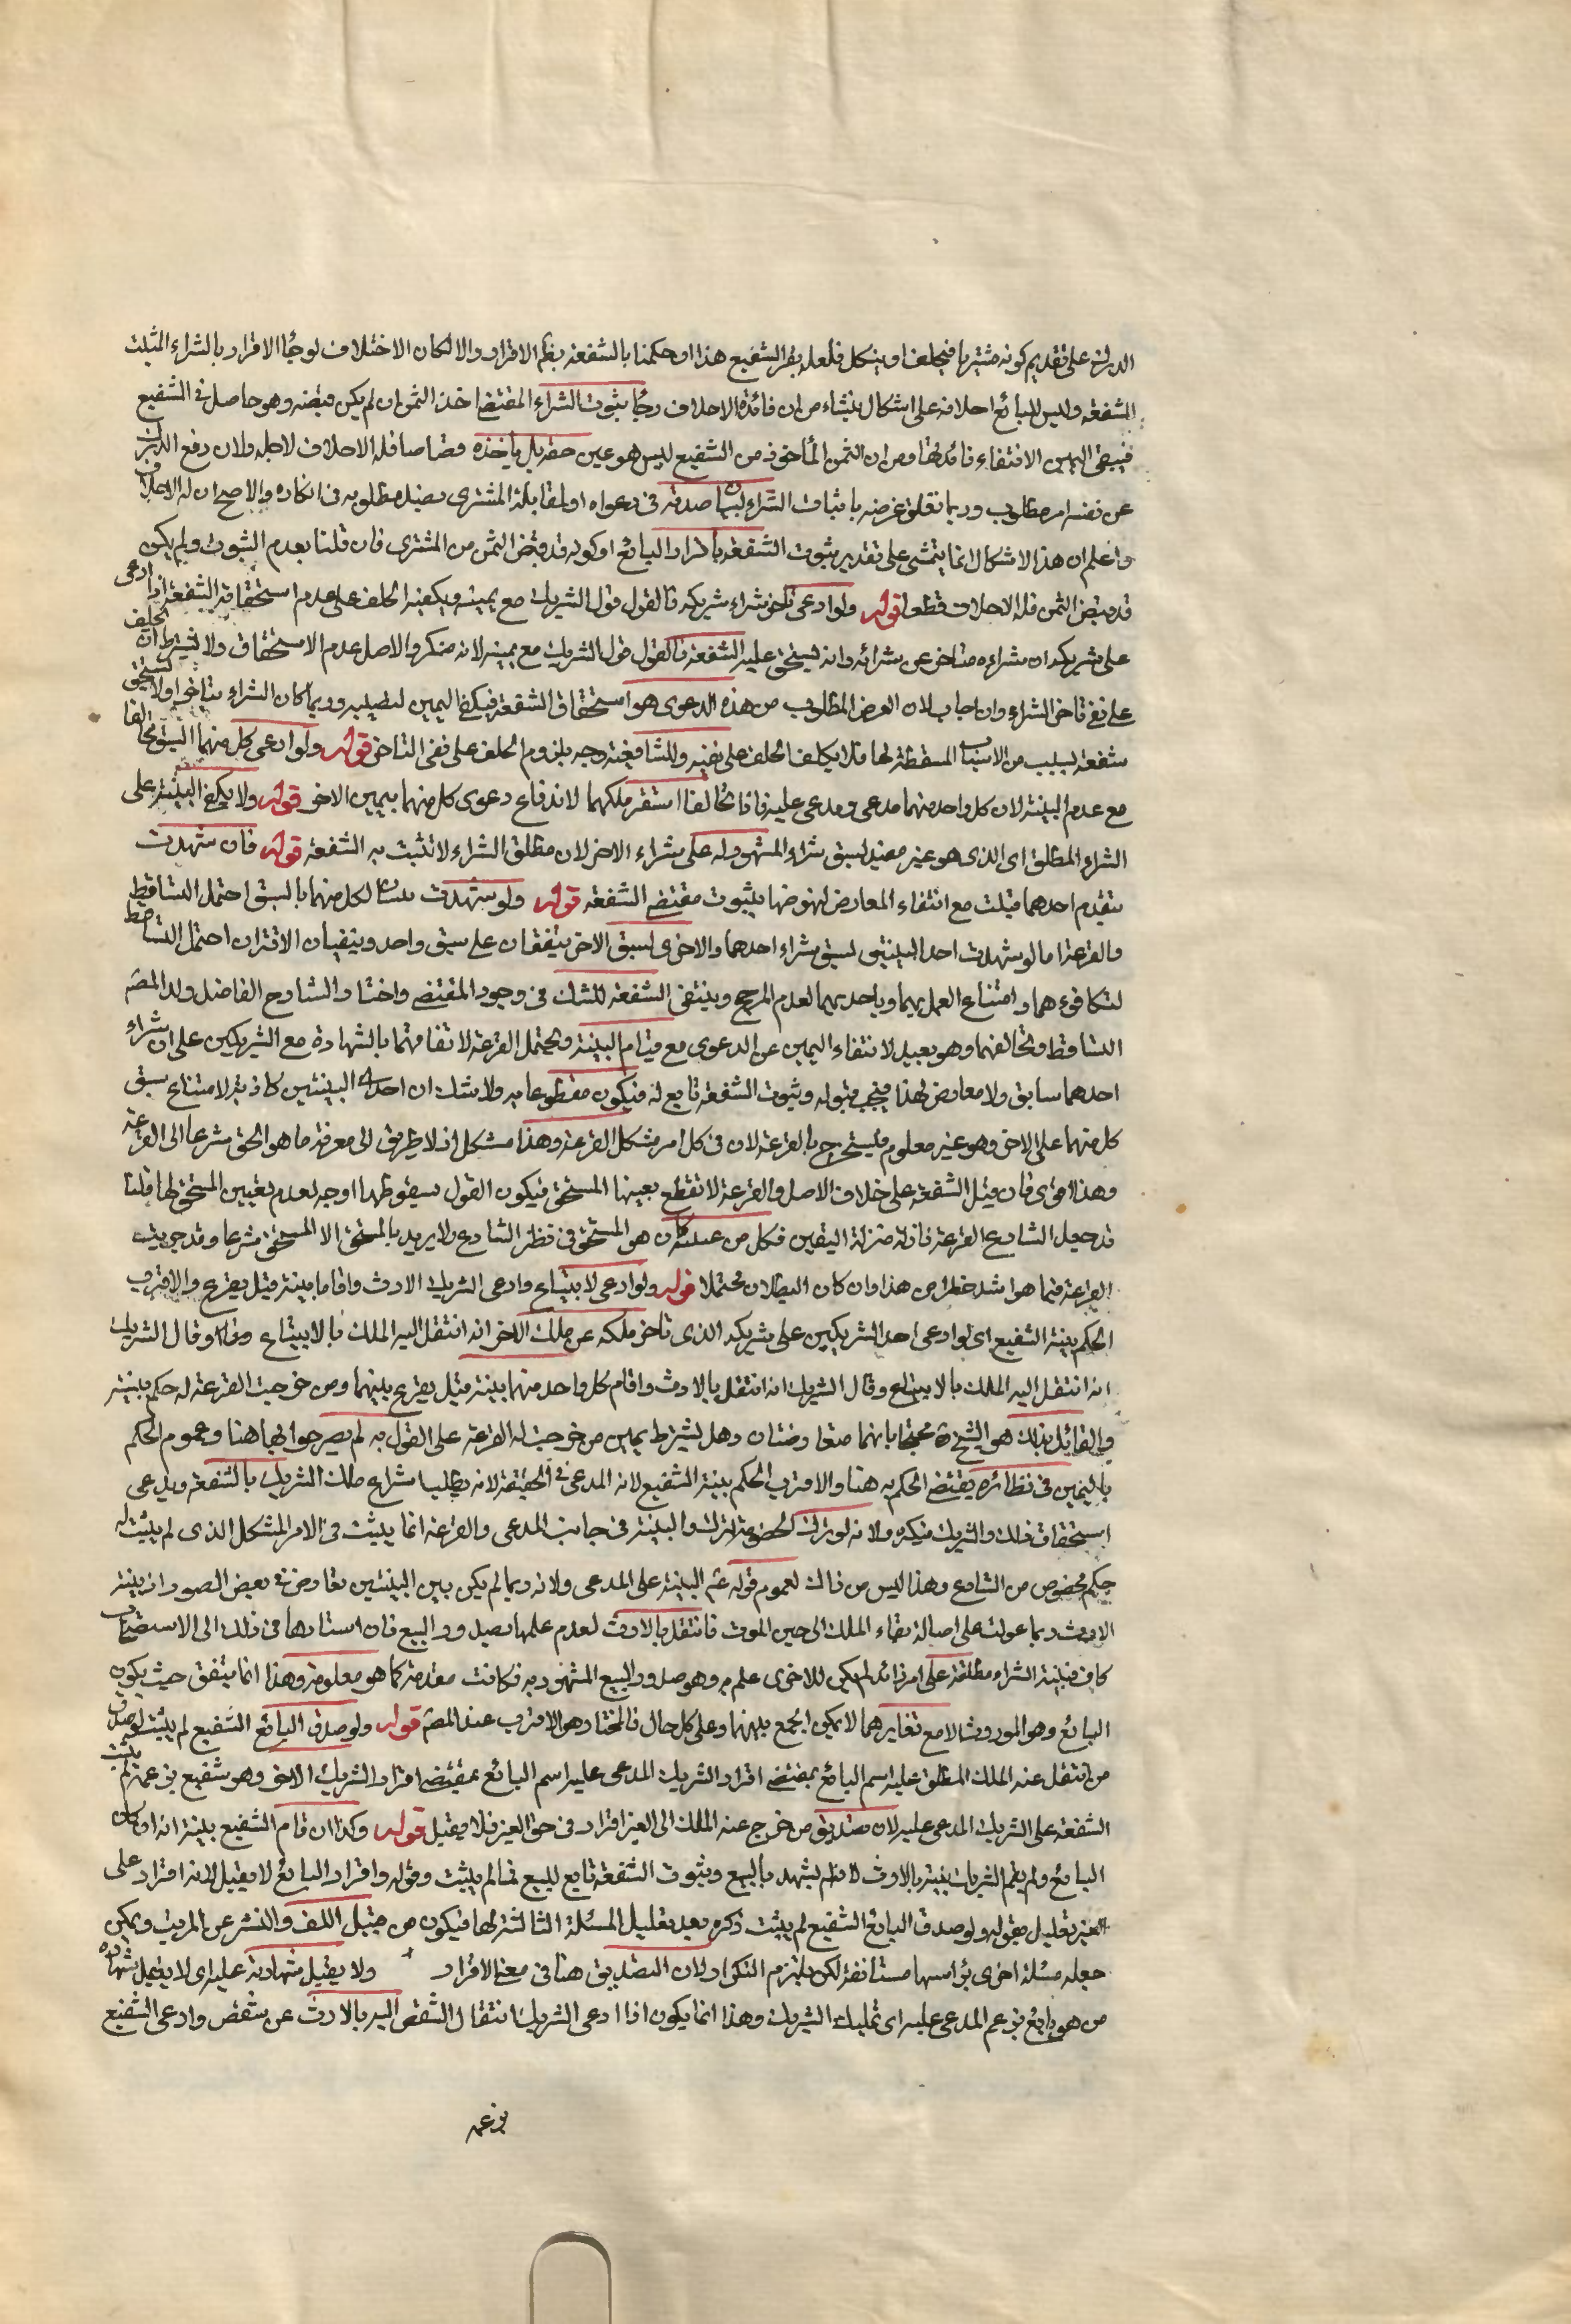 الدرك على تقديم كونه مشتريا فيحلف او ينكل فلعله يقر الشفيع هذا ان حكمنا بالشفعة بنظم الاقرار والا لكان الاحلاف لوجًا الاقرار بالشراء المثبت
للشفعة وليس للبائع احلافه على اشكال ينشاء من ان فائدة الاحلاف رجًا بثبوت الشراء المقتضي اخذ الثمن ان لم يكن قبضه وهو حاصل من الشفيع
فينتفى اليمين لانتفاء فائدتها ومن ان الثمن المأخوذ من الشفيع ليس هو عين حقه بل يأخذه قصاصا فله الاحلاف لاجله ولان دفع الدرك
عن نفسه امر مطلوب وربما تعلق غرضه باثبات الشراء صدقه في دعواه او لمقابلة المشترى بضد مطلوبه في انكاره والاصح ان له الاحلاف
واعلم ان هذا الاشكال انما يتمشى على تقدير ثبوت الشفعة باقرار البائع او كونه قد قبض الثمن من المشترى فان قلنا بعدم الثبوت ولم يكن
قد قبض الثمن فله الاحلاف قطعا قوله ولو ادعى تأخر شراء شريكه فالقول قول الشريك مع يمينه ويكفيه الحلف على عدم استحقاقه الشفعة اذا ادعى
على شريكه ان شراءه متاخر عن شرائه وانه يستحق عليه الشفعة فالقول قول الشريك مع يمينه لانه منكر والاصل عدم الاستحقاق ولا يشترط ان يحلف
على نفى تاخر الشراء وان اجاب به لان الغرض المطلوب من هذه الدعوى هو استحقاق الشفعة فيكفى اليمين لنفيه وربما كان الشراء متاخرا ولا يستحق
شفعة لسبب من الاسباب المسقطة لها فلا يكلف الحلف على نفيه وللشافعية وجه بلزوم الحلف على نفى التاخر قوله ولو ادعى كل منهما السبق تحالفا
مع عدم البينة لان كل واحد منهما مدعى ومدعى عليه فاذا تحالفا استقر ملكهما لاندفاع دعوى كل منهما بيمين الاخر قوله ولا يكفى البينة على
الشراء المطلق اى الذى هو غير مقيد بسبق شراء المشهود له على شراء الاخر لان مطلق الشراء لا تثبت به الشفعة قوله فان شهدت
بتقدم احدهما قبلت مع انتفاء المعارض لنهوضها بثبوت مقتضى الشفعة قوله ولو شهدت بينتان لكل منهما بالسبق احتمل التساقط
والقرعة اما لو شهدت احد البينتين بسبق شراء احدهما والاخرى بسبق الاخر يتفقان على سبق واحد وينفيان الاقتران احتمل التساقط
لتكافوءهما وامتناع العمل بهما وباحديهما لعدم المرجح وينتفى الشفعة للشك فى وجود المقتضى واختار الشارح الفاضل ولد المصم
التساقط وتحالفهما وهو بعيد لانتفاء اليمين عن الدعوى مع قيام البينة ويحتمل القرعة لاتفاقهما بالشهادة مع الشريكين على ان شراء
احدهما سابق ولا معارض لهذا فيجب قبوله وثبوت الشفعة تابع له فيكون مقطوعا به ولا شك ان احدى البينتين كاذبة لامتناع سبق
كل منهما على الاخر وهو غير معلوم فيستخرج بالقرعة لان فى كل امر مشكل القرعة وهذا مشكل اذ لا طريق الى معرفة ما هو الحق شرعا الى القرعة
وهذا اقوى فان قيل الشفعة على خلاف الاصل والقرعة لا تقطع بعينها المستحق فيكون القول بسقوطها اوجه لعدم تعيين المستحق لها قلنا
قد جعل الشارع القرعة نازلة منزلة اليقين فكل من عينته كان هو المستحق فى نظر الشارع ولا يريد بالمستحق الا المستحق شرعا وقد جريت
القرعة فيما هو اشد خطرا من هذا وان كان البطلان محتملا قوله ولو ادعى الابتياع وادعى الشريك الارث واقاما بينة قيل يقرع والاقرب
الحكم ببينة الشفيع اى لو ادعى احد الشريكين على شريكه الذى تاخر ملكه عن ملك الاخر انه انتقل اليه الملك بالابتياع وقال الشريك
انه انتقل اليه الملك بالابتياع وقال الشريك انه انتقل بالارث واقام كل واحد منهما بينة قيل يقرع بينهما ومن خرجت القرعة له حكم ببينته
والقائل بذلك هو الشيخ ره محتجا بانهما متعارضتان وهل يشترط يمين من خرجت له القرعة على القول به لم يصرحوا بها هنا وعموم الحكم
باليمين فى نظائره يقتضى الحكم به هنا والاقرب الحكم ببينة الشفيع لانه المدعى فى الحقيقة لانه يطلب انتزاع ملك الشريك بالشفعة ويدعى
استحقاق ذلك والشريك ينكره ولانه لو ترك الخصومة لترك والبينة فى جانب المدعى والقرعة انما يثبت فى الامر المشكل الذى لم يثبت له
حكم مخصوص من الشارع وهذا ليس من ذلك لعموم قوله عم البينة على المدعى ولانه ربما لم يكن بين البينتين تعارض فى بعض الصور اذ بينة
الارث ربما عولت على اصالة بقاء الملك الى حين الموت فانتقل بالارث لعدم علمها بصدور البيع فان استنادها فى ذلك الى الاستصحاب
كاف فبينة الشراء مطلعة على امر زائد لم يكن للاخرى علم به وهو صدور البيع المشهود به فكانت مقدمة كما هو معلوم وهذا انما يتفق حيث يكون
البائع وهو المورث لا مع تغايرهما لا يمكن الجمع بينهما وعلى كل حال فالمختار هو الاقرب عند المصم قوله ولو صدق البائع الشفيع لم يثبت لو صدق
من انتقل عنه الملك المطلق عليه اسم البائع بمقتضى اقرار الشريك المدعى عليه اسم البائع بمقتضى اقرار الشريك الاخر وهو شفيع بزعمه لم يثبت
الشفعة على الشريك المدعى عليه لان تصديق من خرج عنه الملك الى الغير اقرار فى حق الغير فلا يقبل قوله وكذا ان قام الشفيع بينة انه كان
البائع ولم يقم الشريك بينة بالارث لانه لم يشهد بالبيع وثبوت الشفعة تابع للبيع فما لم يثبت وقوله واقرار البائع لا يقبل لانه اقرار على
الغير تعليل بقوله ولو صدق البائع الشفيع لم يثبت ذكره بعد تعليل المسئلة الثالثة لها فيكون من قبيل اللف والنشر عن المرتب ويمكن
جعله مسئلة اخرى برأسها مستانفة لكن يلزم التكرار لان التصديق هنا فى معنى الاقرار ولا يقبل شهادته عليه اى لا يقبل شهادة
من هو بايع بزعم المدعى عليه اى تمليك الشريك وهذا انما يكون اذا ادعى الشريك انتقال الشقص اليه بالارث عن شقص وادعى الشفيع
بزعمه